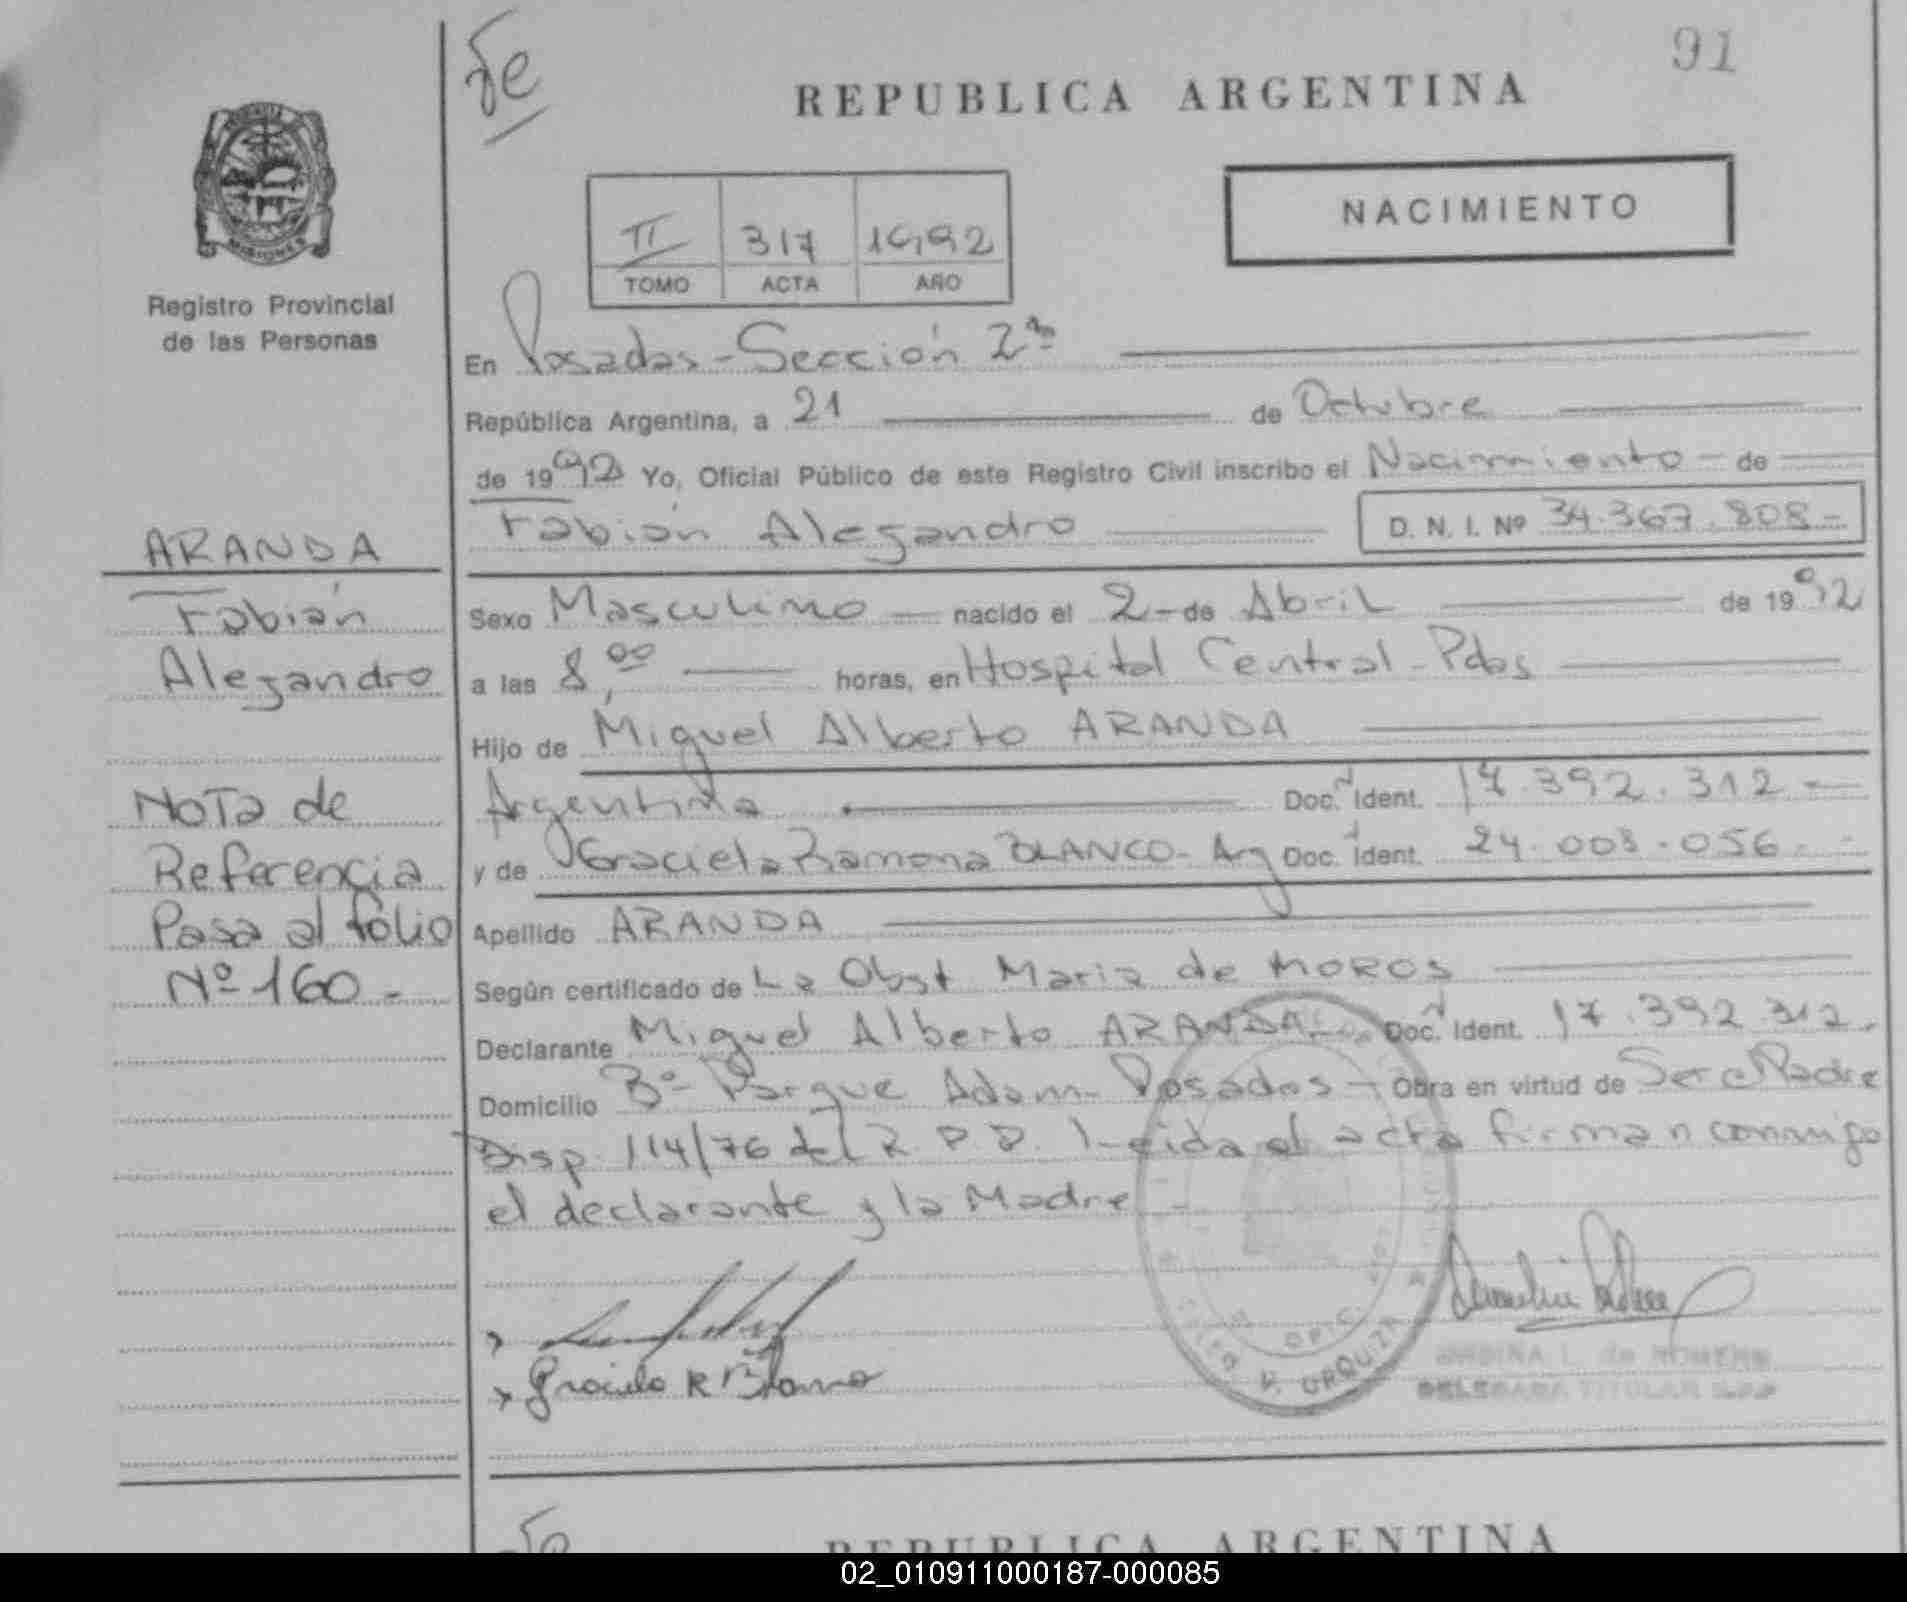 91
REPUBLICA ARGENTINA
NACIMIENTO
II 317 1992
TOMO ACTA AÑO
MISIONES
Registro Provincial
de las Personas
En Posadas - Sección 2ª
República Argentina, a 21 de Octubre
de 1992 Yo, Oficial Público de este Registro Civil inscribo el Nacimiento - de
Fabián Alejandro D. N. I. Nº 34.367.808 -
ARANDA
Fabián
Alejandro
Sexo Masculino nacido el 2 - de Abril de 1992
a las 8,00 horas, en Hospital Central - Pdas
Hijo de Miguel Alberto ARANDA
Argentina Doc. Ident. 17.392.312 -
y de Graciela Ramona BLANCO - Arg Doc. Ident. 24.008.056 -
Nota de
Referencia
Pasa al folio
Nº 160 -
Apellido ARANDA
Según certificado de La Obst Maria de MOROS
Declarante Miguel Alberto ARANDA - Doc. Ident. 17.392.312.
Domicilio Bº Parque Adam - Posadas - Obra en virtud de Ser el Padre
Disp. 114/76 del R. P. P. Leida el acta firman conmigo
el declarante y la Madre -
Graciela R Blanco
URQUIZA
DELEGADA TITULAR R.P.P
REPUBLICA ARGENTINA
02_010911000187-000085